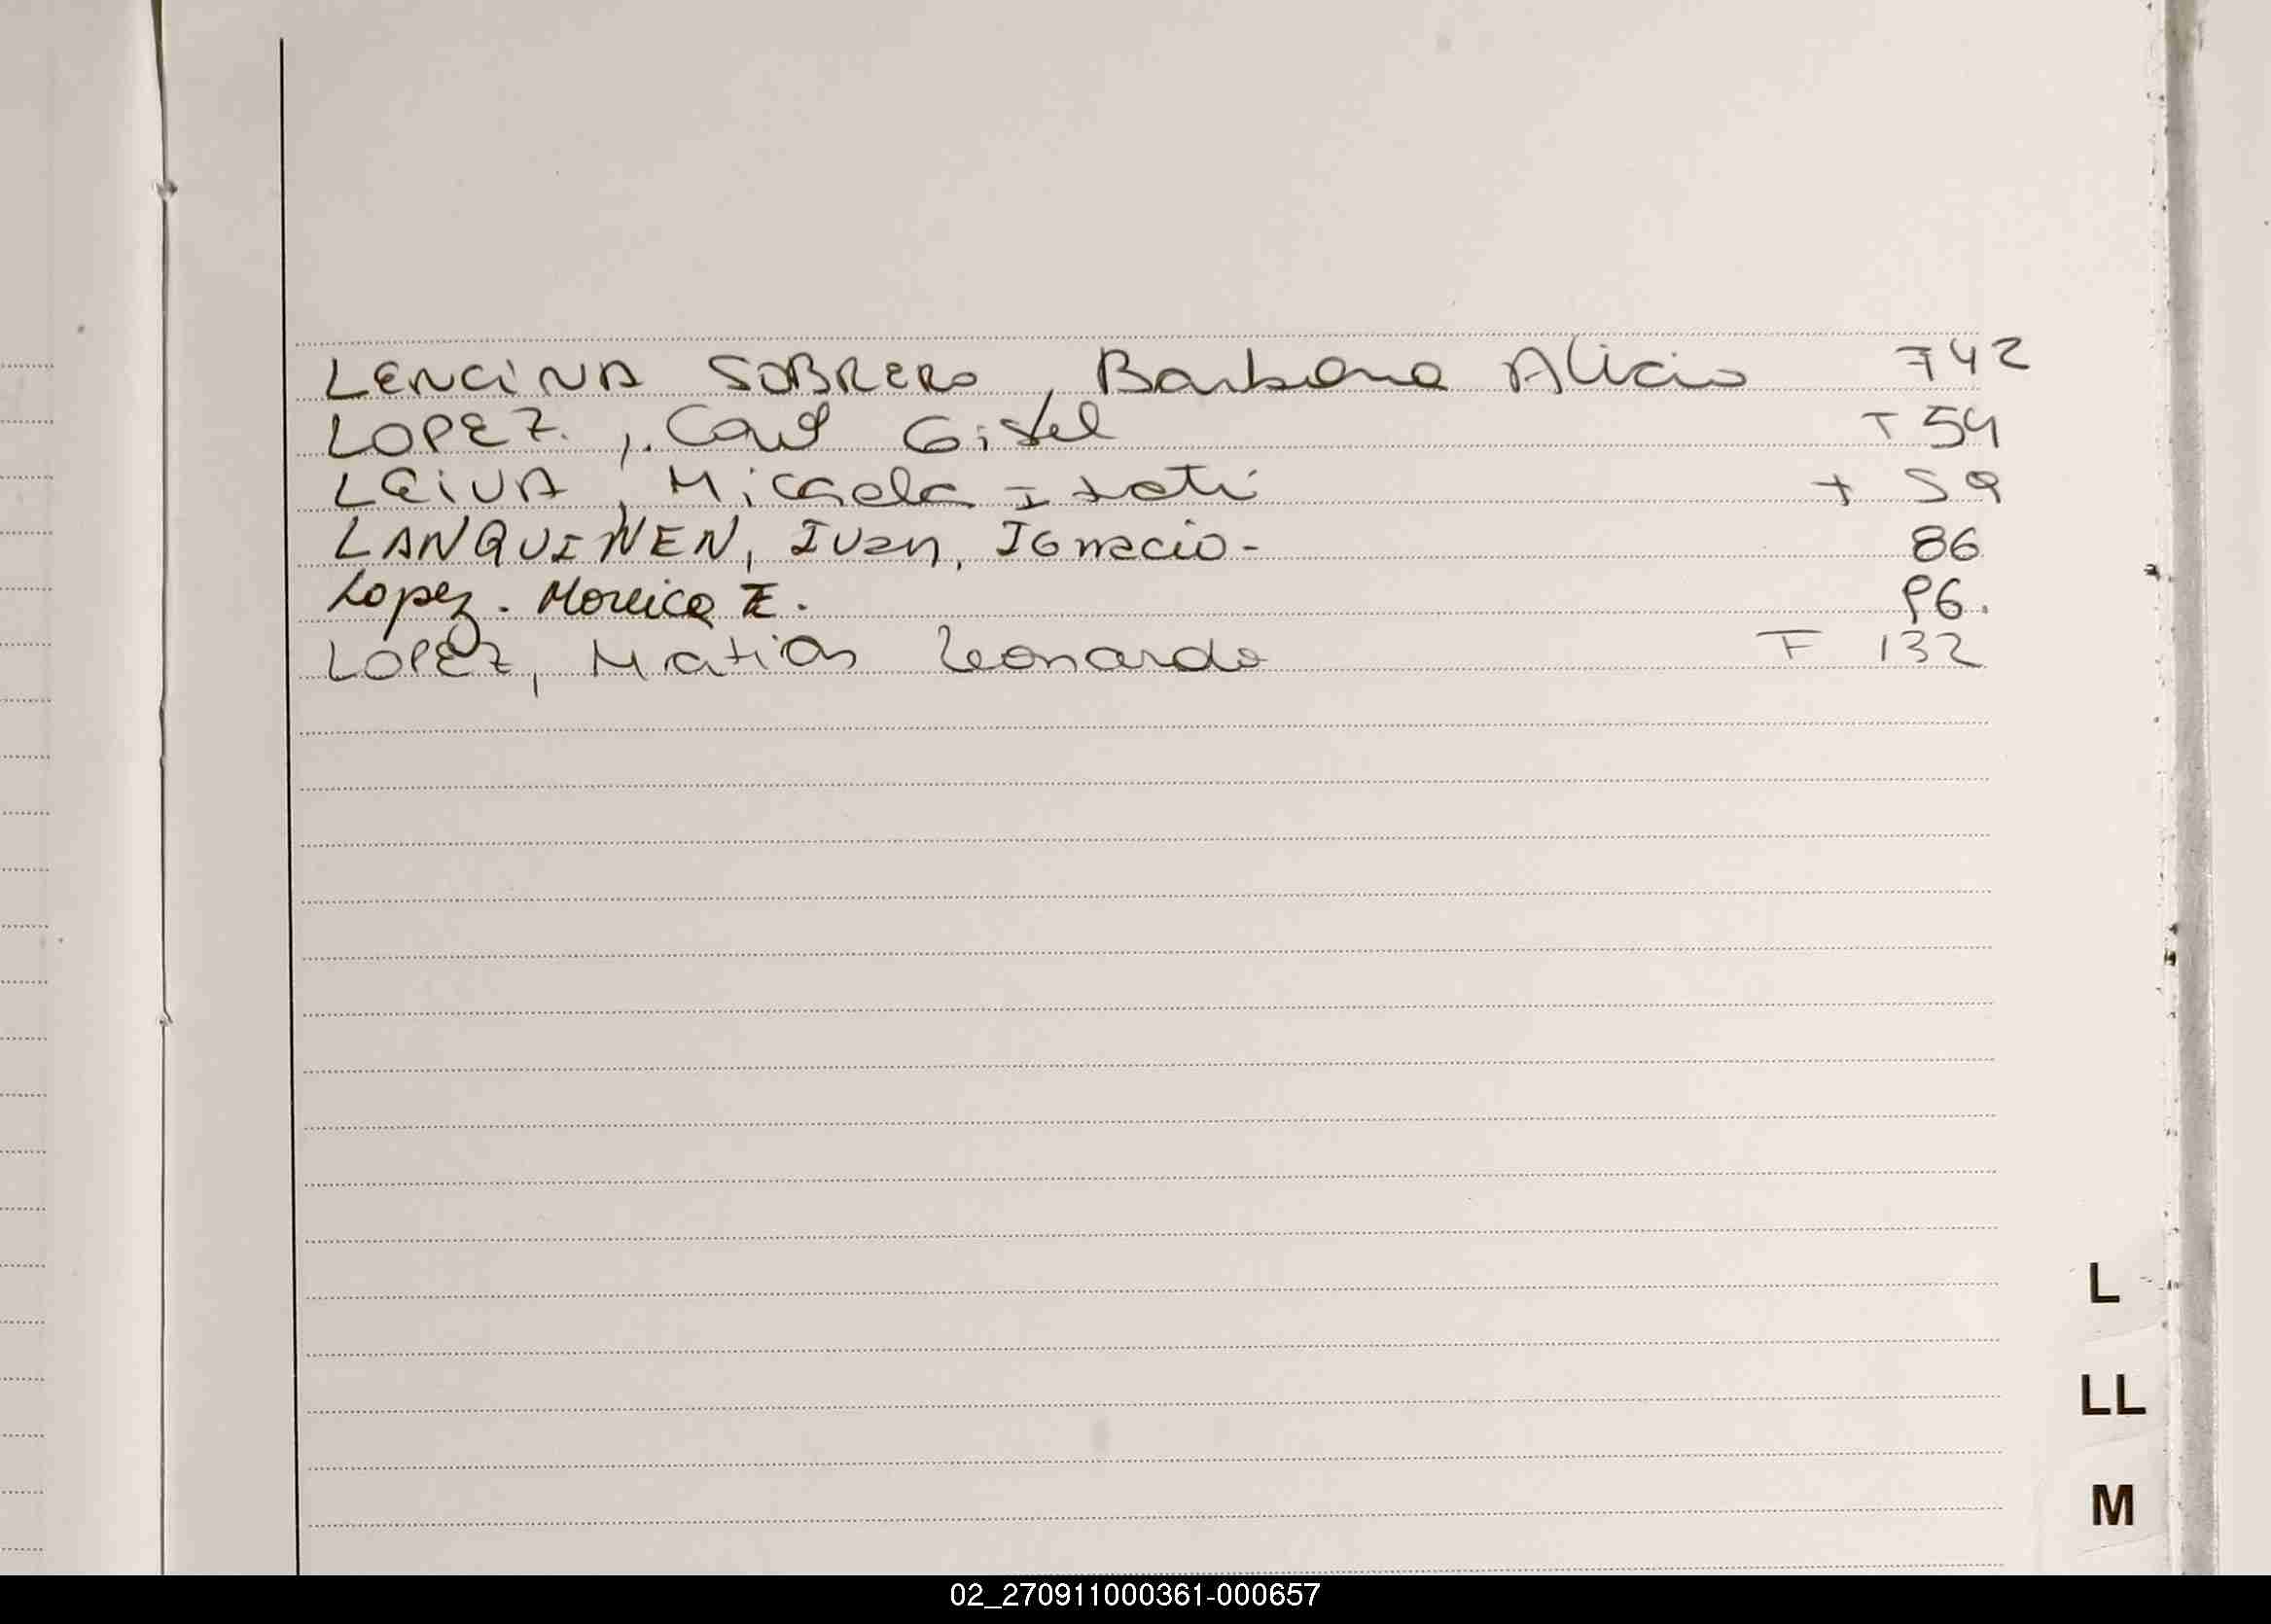 LENCINA SOBRERO, Barbara Alicia 742
LOPEZ, Gisel T 54
LEIVA, Micaela Itati + 59
LANQUIÑEN, Ivan, Ignacio- 86
Lopez. Monica E. 96.
LOPEZ, Matias Leonardo F 132
L
LL
M
02_270911000361-000657